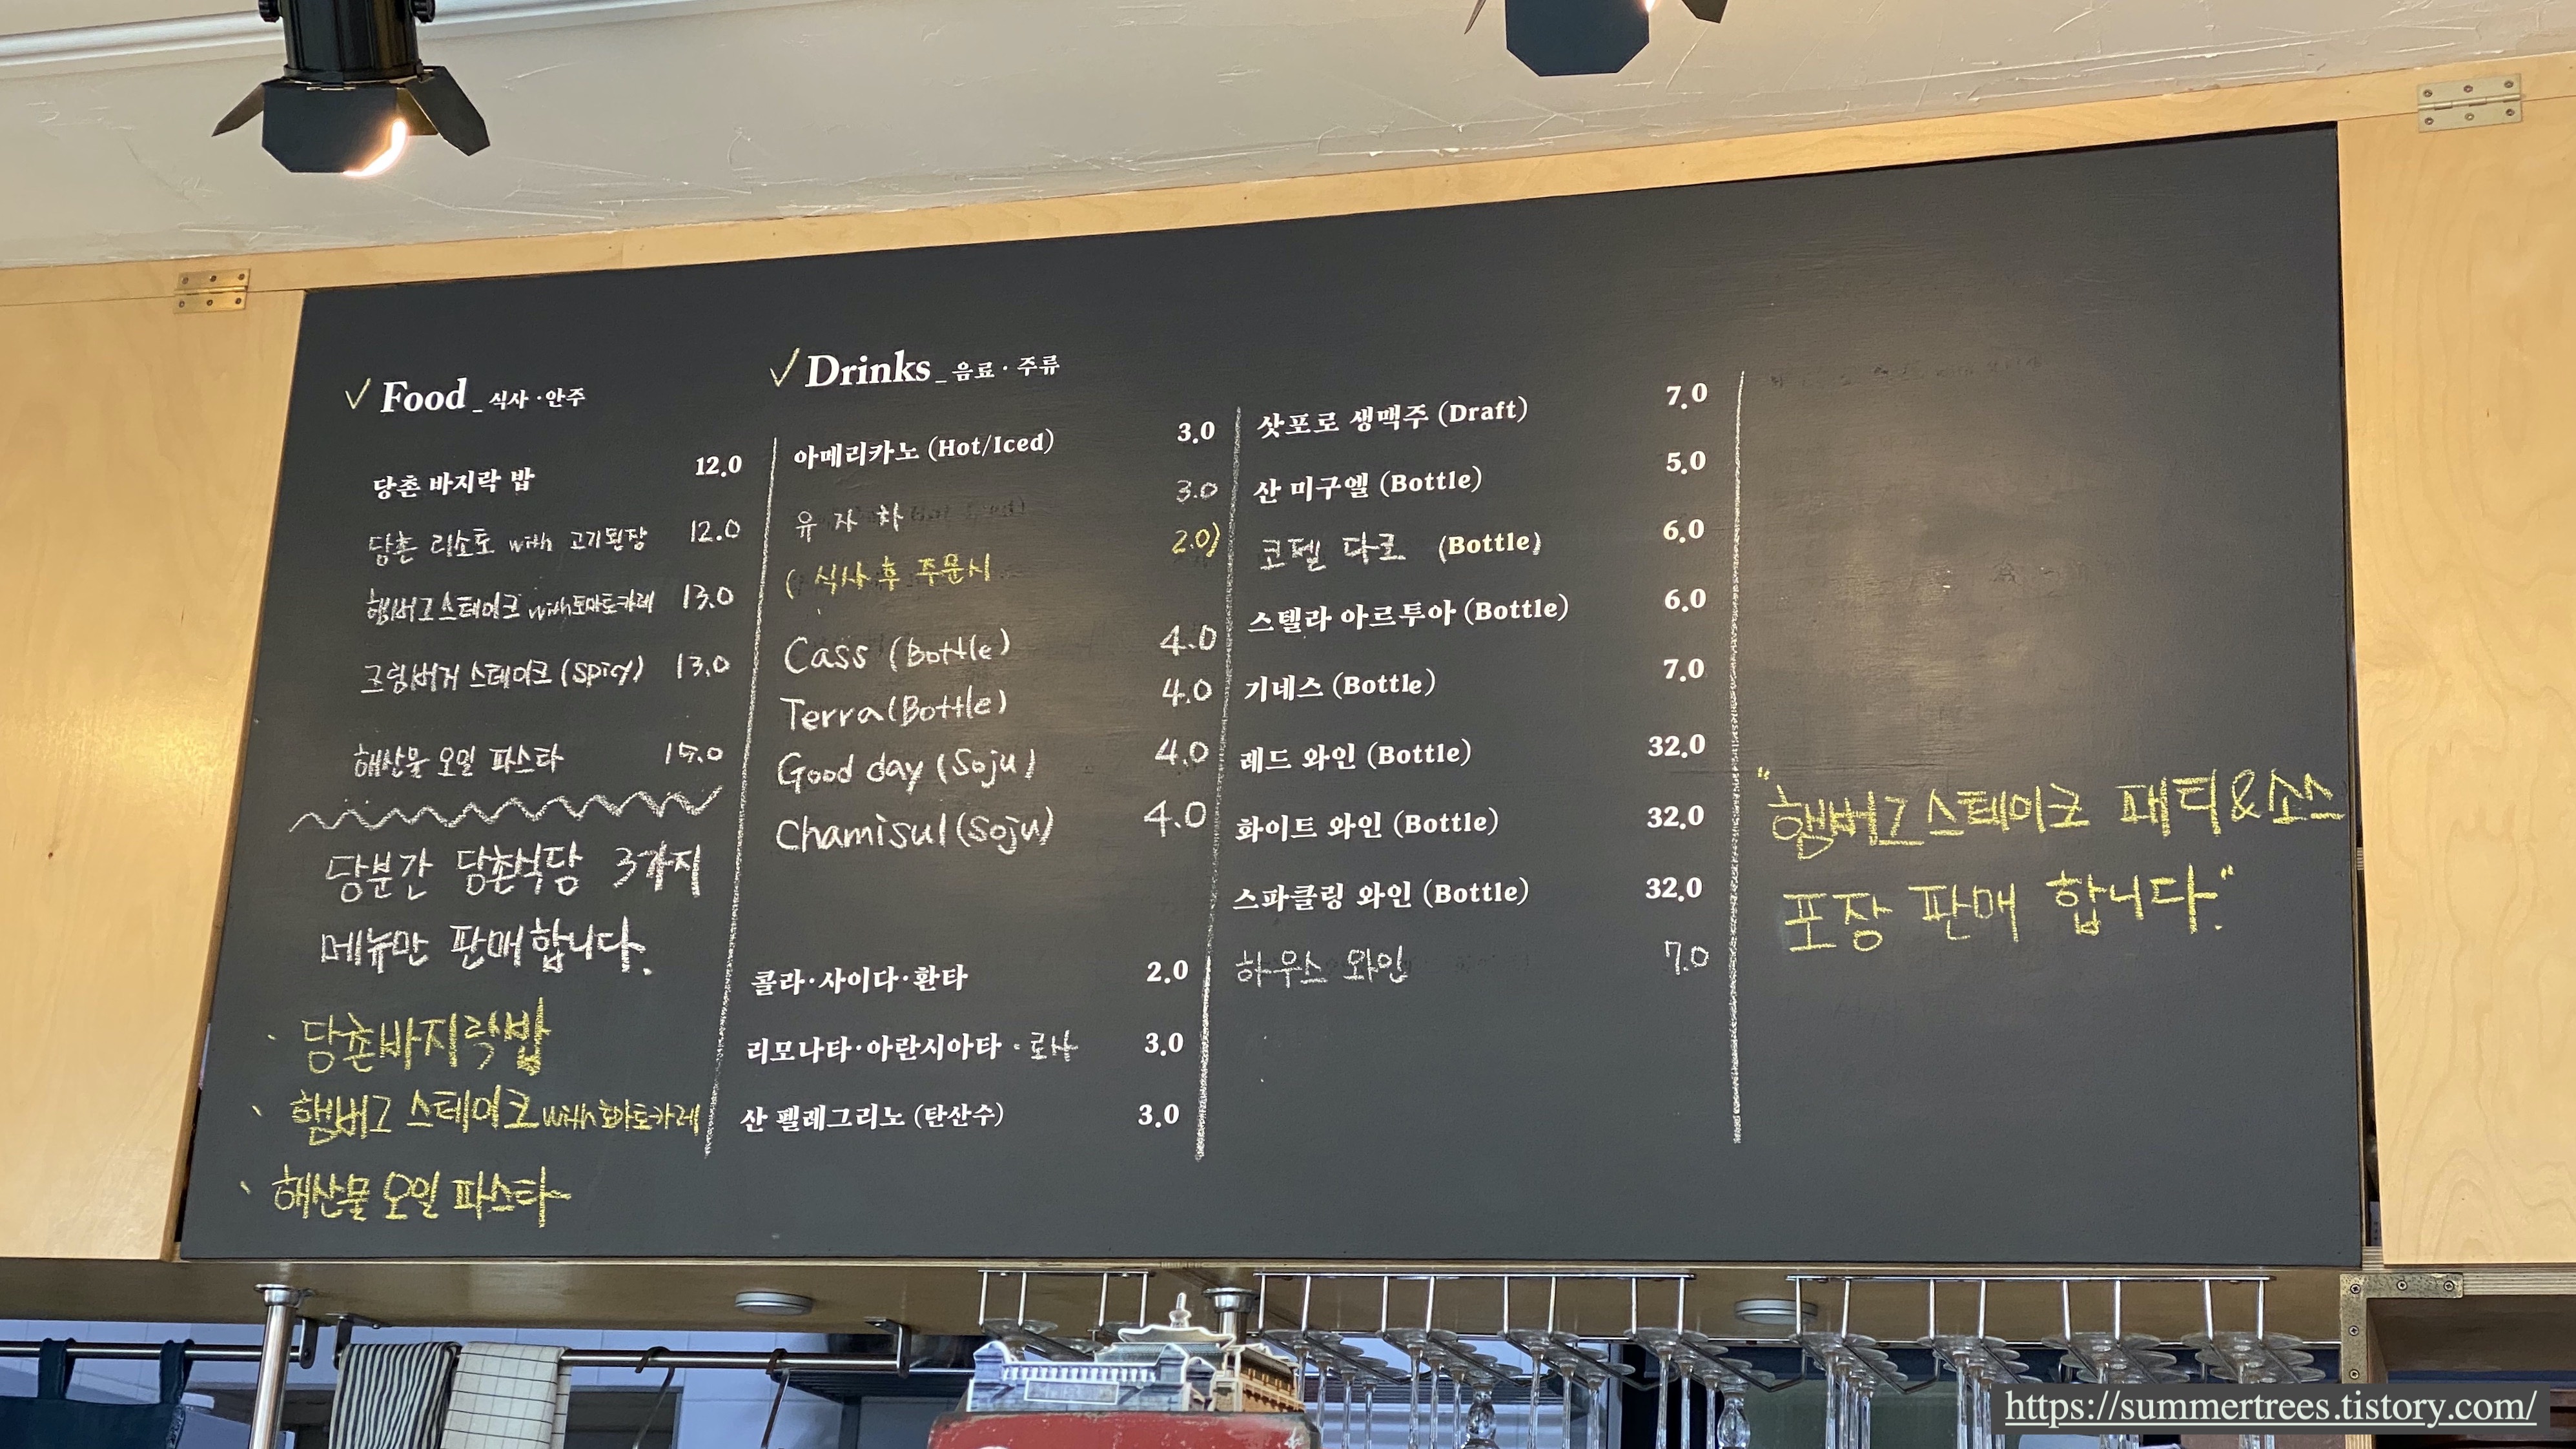 ✓ Food _ 식사 · 안주
당촌 바지락 밥 12.0
당촌 리소토 with 고기된장 12.0
햄버그스테이크 with토마토카레 13.0
크림버거 스테이크 (Spicy) 13.0
해산물 오일 파스타 15.0
당분간 당촌식당 3가지
메뉴만 판매합니다.
· 당촌바지락밥
· 햄버그 스테이크with토마토카레
· 해산물 오일 파스타
✓ Drinks _ 음료 · 주류
아메리카노 (Hot/Iced) 3.0
유 자 차 3.0
( 식사 후 주문시 2.0)
Cass (Bottle) 4.0
Terra (Bottle) 4.0
Good day (Soju) 4.0
Chamisul (Soju) 4.0
콜라·사이다·환타 2.0
리모나타·아란시아타 · 로사 3.0
산 펠레그리노 (탄산수) 3.0
삿포로 생맥주 (Draft) 7.0
산 미구엘 (Bottle) 5.0
코젤 다크 (Bottle) 6.0
스텔라 아르투아 (Bottle) 6.0
기네스 (Bottle) 7.0
레드 와인 (Bottle) 32.0
화이트 와인 (Bottle) 32.0
스파클링 와인 (Bottle) 32.0
하우스 와인 7.0
"햄버그스테이크 패티&소스
포장 판매 합니다."
https://summertrees.tistory.com/